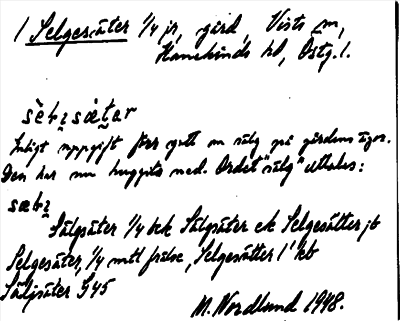 1 Selgesäter 1/4 jr, gård, Vists sn,
Hanekinds hd, Östg. l.
Enligt uppgift förr gått en sälg på gårdens ägor.
Den har nu huggits ned. Ordet "sälg" uttalas:
Sälgsäter 1/4 bek Sälgsäter ek Selgesätter jb
Selgesäter, 1/4 mtl frälse, Selgesätter 1' kb
Säljsäter G45
M. Nordlund 1948.